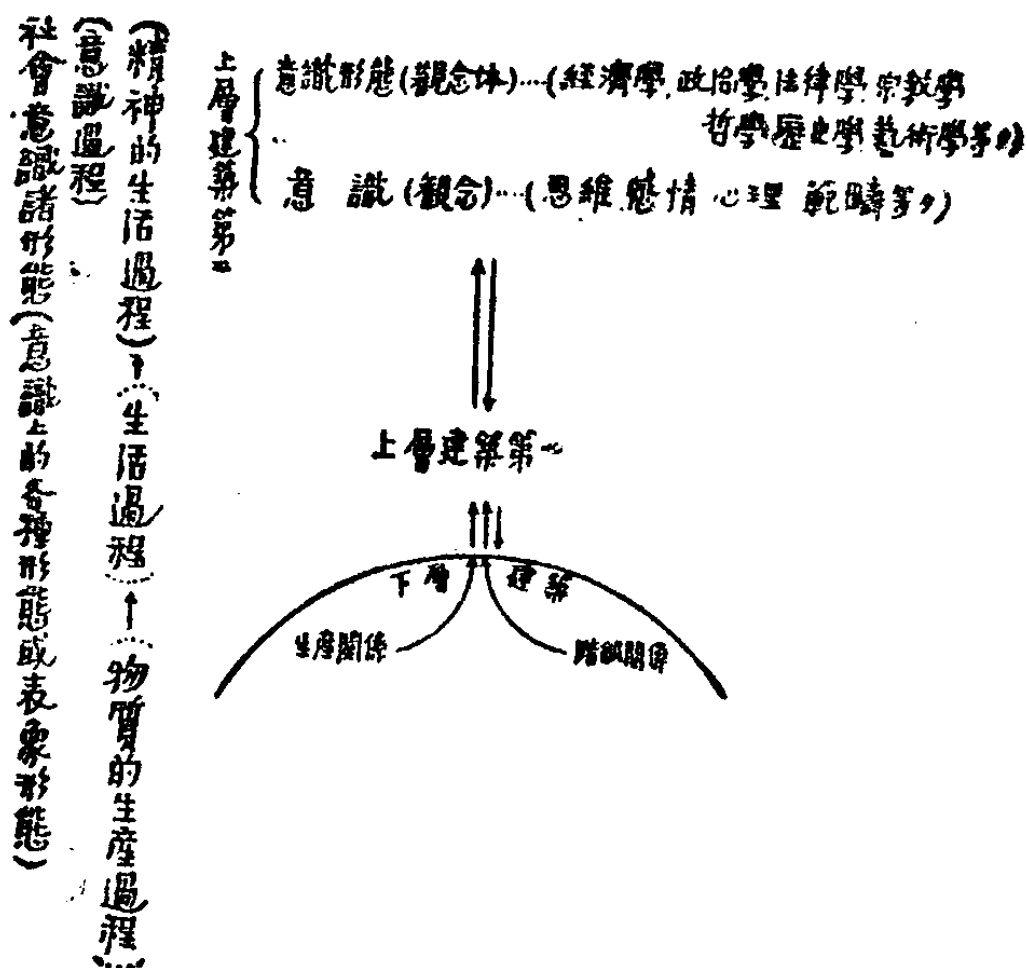 上層建築第二
意識形態(觀念体)…(經濟學.政治學.法律學.宗教學
哲學.歷史學.藝術學等々)
意 識(觀念)…(思維.感情 心理 範疇等々)
上層建築第一
下層 建築
生産關係
階級關係
(精神的生活過程)↑(生活過程)↑(物質的生産過程)
(意識過程)
社會意識諸形態(意識上的各種形態或表象形態)